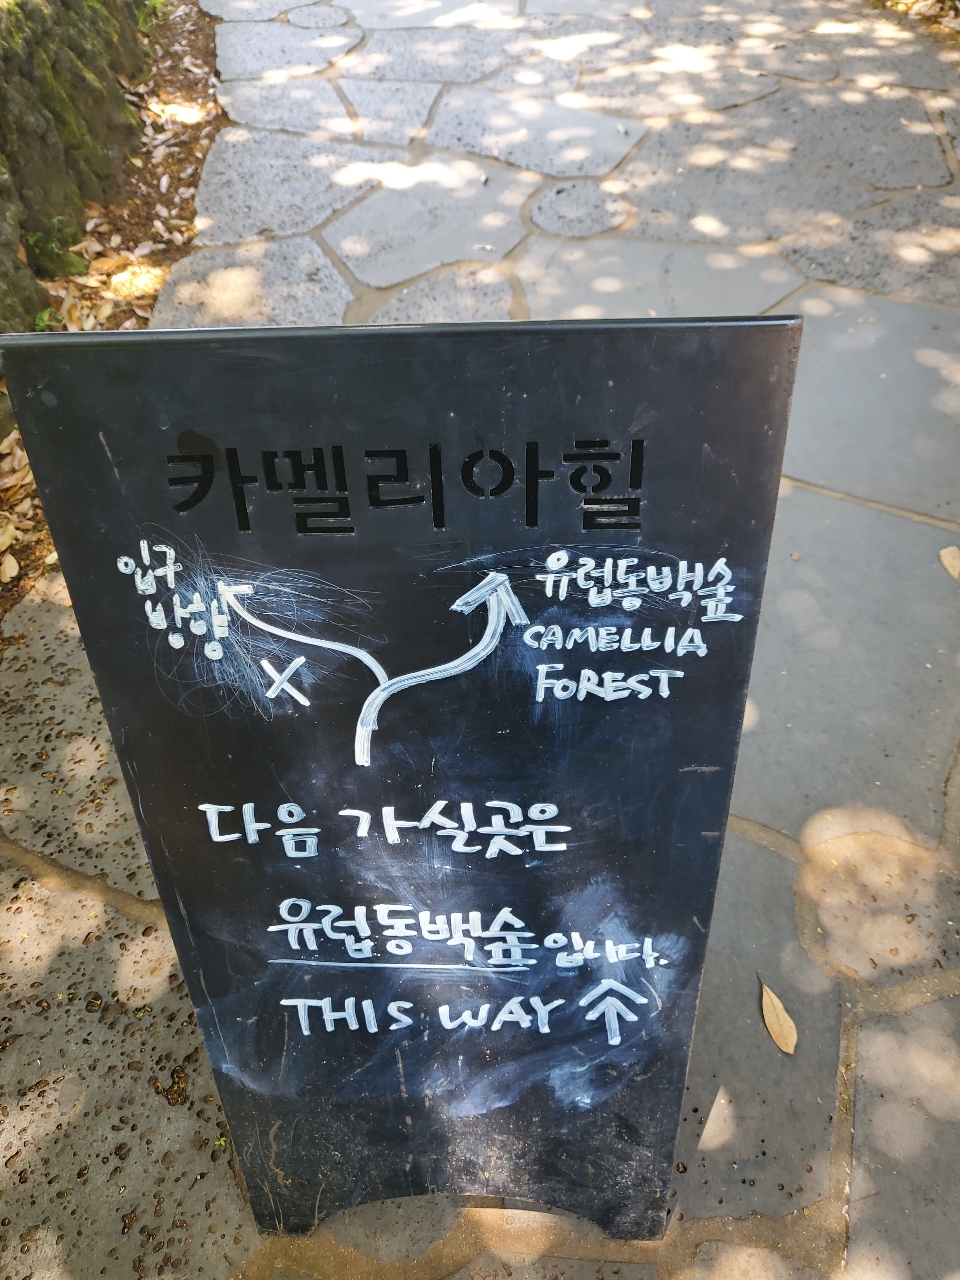 카멜리아힐
입구
방향
X
유럽동백숲
CAMELLIA
FOREST
다음 가실곳은
유럽동백숲입니다.
THIS WAY ↑